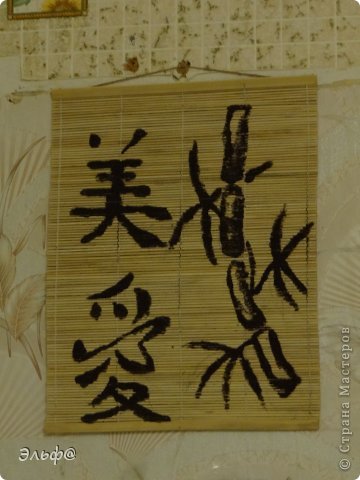 美
愛
Эльф@
© Страна Мастеров